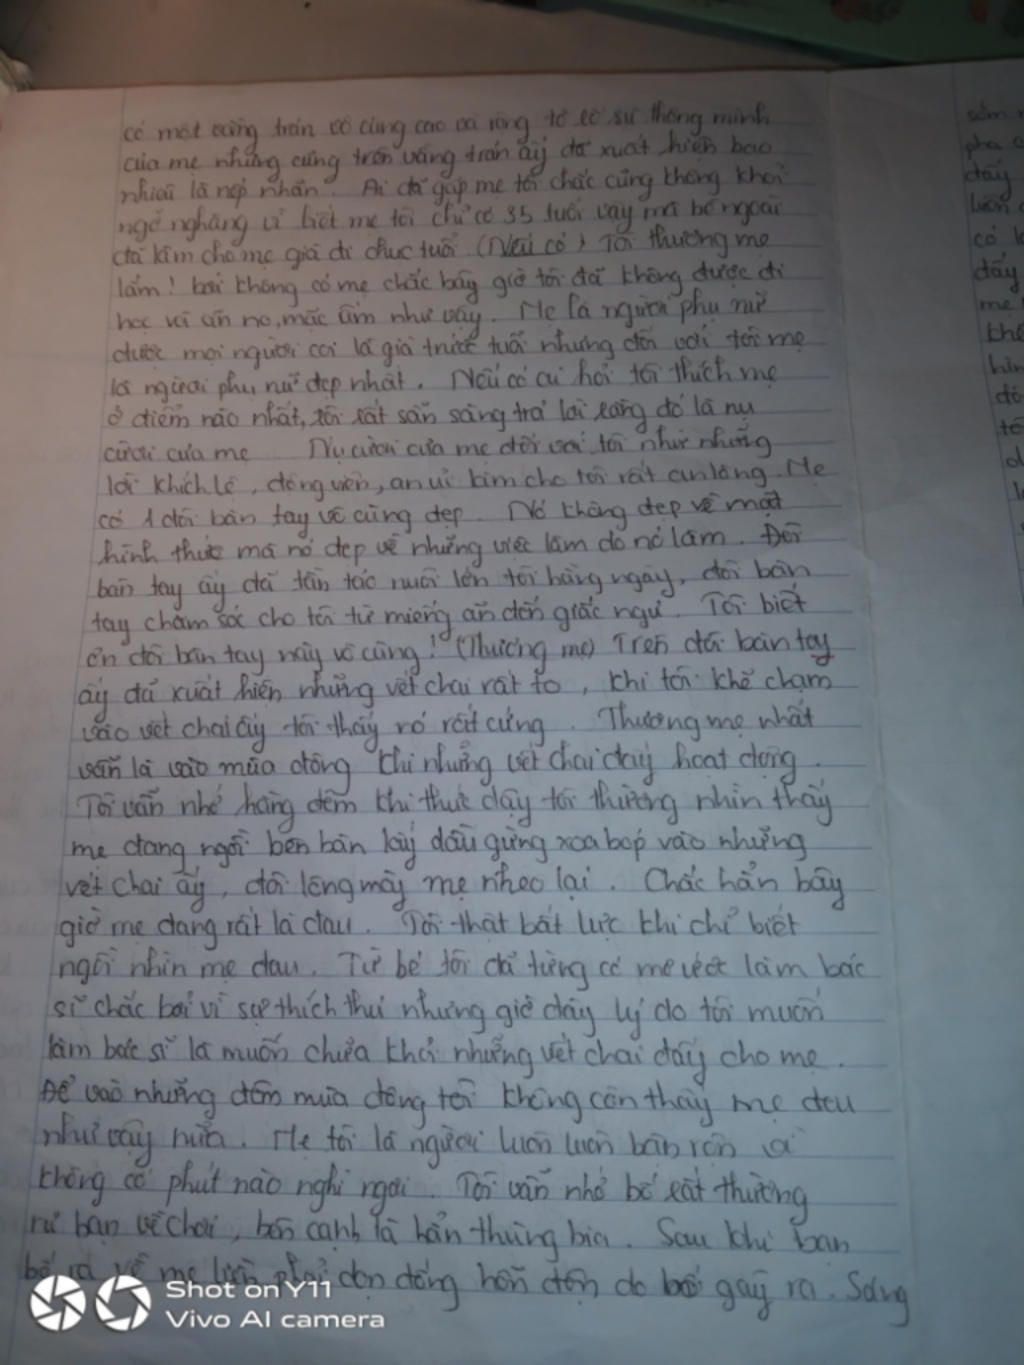 có một vầng trán vô cùng cao và rộng tỏ rõ sự thông minh
của mẹ nhưng cũng trên vầng trán ấy đã xuất hiện bao
nhiêu là nếp nhăn. Ai đã gặp mẹ tôi chắc cũng không khỏi
ngỡ ngàng vì biết mẹ tôi chỉ có 35 tuổi vậy mà bề ngoài
đã làm cho mẹ già đi chục tuổi. (Nếu có) Tôi thương mẹ
lắm! bởi không có mẹ chắc bây giờ tôi đã không được đi
học với ăn no, mặc ấm như vậy. Mẹ là người phụ nữ
được mọi người coi là già trước tuổi nhưng đối với tôi mẹ
là người phụ nữ đẹp nhất. Nếu có ai hỏi tôi thích mẹ
ở điểm nào nhất, tôi rất sẵn sàng trả lời rằng đó là nụ
cười của mẹ Nụ cười của mẹ đối với tôi như những
lời khích lệ, động viên, an ủi làm cho tôi rất an lòng. Mẹ
có 1 đôi bàn tay vô cùng đẹp. Nó không đẹp về mặt
hình thức mà nó đẹp về những việc làm do nó làm. Đôi
bàn tay ấy đã tần tảo nuôi lớn tôi hằng ngày, đôi bàn
tay chăm sóc cho tôi từ miếng ăn đến giấc ngủ. Tôi biết
ơn đôi bàn tay này vô cùng! (Thương mẹ) Trên đôi bàn tay
ấy đã xuất hiện những vết chai rất to, khi tôi khẽ chạm
vào vết chai ấy tôi thấy nó rất cứng. Thương mẹ nhất
vẫn là vào mùa đông khi những vết chai đấy hoạt động.
Tôi vẫn nhớ hằng đêm khi thức dậy tôi thường nhìn thấy
mẹ đang ngồi bên bàn lấy dầu gừng xoa bóp vào những
vết chai ấy, đôi lông mày mẹ nheo lại. Chắc hẳn bây
giờ mẹ đang rất là đau. Tôi thật bất lực khi chỉ biết
ngồi nhìn mẹ đau. Từ bé tôi đã từng có mơ ước làm bác
sĩ chắc bởi vì sự thích thú nhưng giờ đây lý do tôi muốn
làm bác sĩ là muốn chữa khỏi những vết chai đấy cho mẹ.
Để vào những đêm mùa đông tôi không còn thấy mẹ đau
như vậy nữa. Mẹ tôi là người luôn luôn bận rộn và
không có phút nào nghỉ ngơi. Tôi vẫn nhớ bố rất thường
rủ bạn về chơi, bên cạnh là hẳn thùng bia. Sau khi bạn
bố ra về mẹ luôn phải dọn đống hỗn độn do bố gây ra. Sáng
Shot on Y11
Vivo AI camera